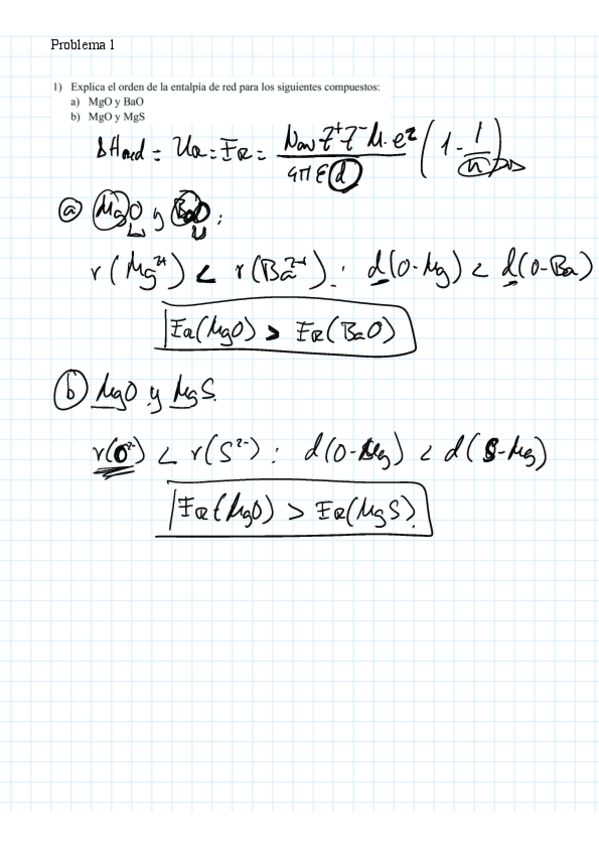 Problema 1
1) Explica el orden de la entalpía de red para los siguientes compuestos:
a) MgO y BaO
b) MgO y MgS
ΔHred = UR = ER = Nav Z⁺Z⁻ M · e² / 4πε d (1 - 1/n)
ⓐ MgO y BaO :
r(Mg²⁺) < r(Ba²⁺) : d(O-Mg) < d(O-Ba)
ER(MgO) > ER(BaO)
ⓑ MgO y MgS.
r(O²⁻) < r(S²⁻) : d(O-Mg) < d(S-Mg)
ER(MgO) > ER(MgS).